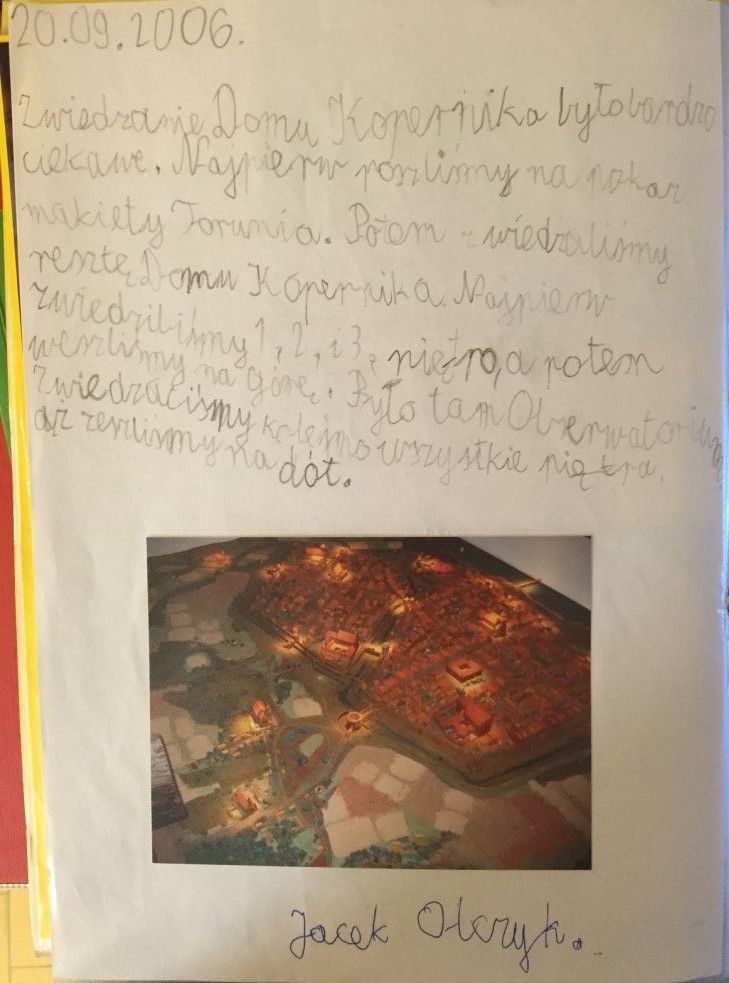 20.09.2006.
Zwiedzanie Domu Kopernika było bardzo
ciekawe. Najpierw poszliśmy na pokaz
makiety Torunia. Potem zwiedzaliśmy
resztę Domu Kopernika. Najpierw
zwiedziliśmy 1, 2, i 3, piętro, a potem
weszliśmy na górę. Było tam Obserwatorium
zwiedzaliśmy kolejno wszystkie piętra.
aż zeszliśmy na dół.
Jacek Olczyk.